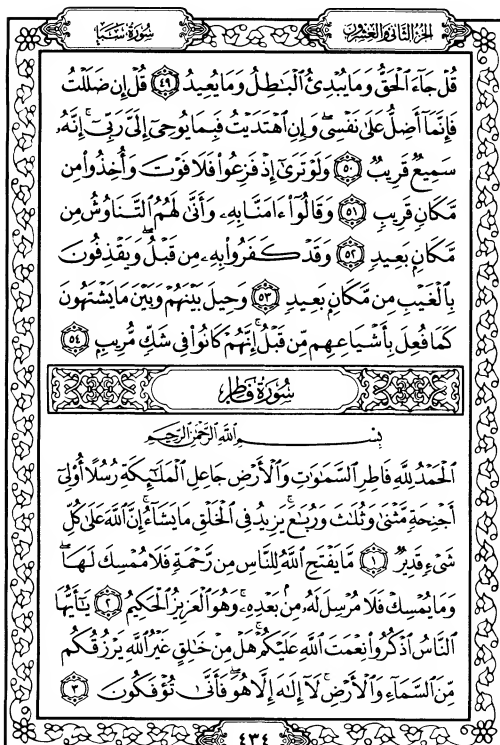 سُورَةُ سَبَإٍ
الجُزْءُ الثَّانِي وَالعِشْرُونَ
قُلْ جَآءَ ٱلْحَقُّ وَمَا يُبْدِئُ ٱلْبَٰطِلُ وَمَا يُعِيدُ ٤٩ قُلْ إِن ضَلَلْتُ
فَإِنَّمَآ أَضِلُّ عَلَىٰ نَفْسِى ۖ وَإِنِ ٱهْتَدَيْتُ فَبِمَا يُوحِىٓ إِلَىَّ رَبِّىٓ ۚ إِنَّهُۥ
سَمِيعٌ قَرِيبٌ ٥٠ وَلَوْ تَرَىٰٓ إِذْ فَزِعُوا۟ فَلَا فَوْتَ وَأُخِذُوا۟ مِن
مَّكَانٍ قَرِيبٍ ٥١ وَقَالُوٓا۟ ءَامَنَّا بِهِۦ وَأَنَّىٰ لَهُمُ ٱلتَّنَاوُشُ مِن
مَّكَانٍۭ بَعِيدٍ ٥٢ وَقَدْ كَفَرُوا۟ بِهِۦ مِن قَبْلُ ۖ وَيَقْذِفُونَ
بِٱلْغَيْبِ مِن مَّكَانٍۭ بَعِيدٍ ٥٣ وَحِيلَ بَيْنَهُمْ وَبَيْنَ مَا يَشْتَهُونَ
كَمَا فُعِلَ بِأَشْيَاعِهِم مِّن قَبْلُ ۚ إِنَّهُمْ كَانُوا۟ فِى شَكٍّ مُّرِيبٍۭ ٥٤
سُورَةُ فَاطِرٍ
بِسْمِ ٱللَّهِ ٱلرَّحْمَٰنِ ٱلرَّحِيمِ
ٱلْحَمْدُ لِلَّهِ فَاطِرِ ٱلسَّمَٰوَٰتِ وَٱلْأَرْضِ جَاعِلِ ٱلْمَلَٰٓئِكَةِ رُسُلًا أُو۟لِىٓ
أَجْنِحَةٍ مَّثْنَىٰ وَثُلَٰثَ وَرُبَٰعَ ۚ يَزِيدُ فِى ٱلْخَلْقِ مَا يَشَآءُ ۚ إِنَّ ٱللَّهَ عَلَىٰ كُلِّ
شَىْءٍ قَدِيرٌ ١ مَّا يَفْتَحِ ٱللَّهُ لِلنَّاسِ مِن رَّحْمَةٍ فَلَا مُمْسِكَ لَهَا ۖ
وَمَا يُمْسِكْ فَلَا مُرْسِلَ لَهُۥ مِنۢ بَعْدِهِۦ ۚ وَهُوَ ٱلْعَزِيزُ ٱلْحَكِيمُ ٢ يَٰٓأَيُّهَا
ٱلنَّاسُ ٱذْكُرُوا۟ نِعْمَتَ ٱللَّهِ عَلَيْكُمْ ۚ هَلْ مِنْ خَٰلِقٍ غَيْرُ ٱللَّهِ يَرْزُقُكُم
مِّنَ ٱلسَّمَآءِ وَٱلْأَرْضِ ۚ لَآ إِلَٰهَ إِلَّا هُوَ ۖ فَأَنَّىٰ تُؤْفَكُونَ ٣
٤٣٤